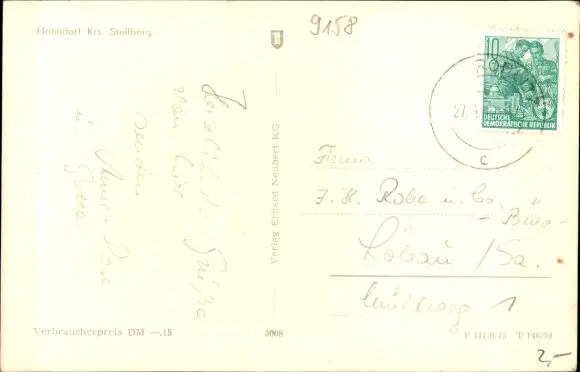 Hohndorf Krs. Stollberg
9158
10
DEUTSCHE
DEMOKRATISCHE REPUBLIK
27.
C
Herzliche Grüße
von hier
senden
Verlag Erhard Neubert KG
Firma
J. H. Rabe u. Co.
- Büro -
Löbau / Sa.
1
Verbraucherpreis DM —.15
3008
V III/6/23 T 146/59
2,-